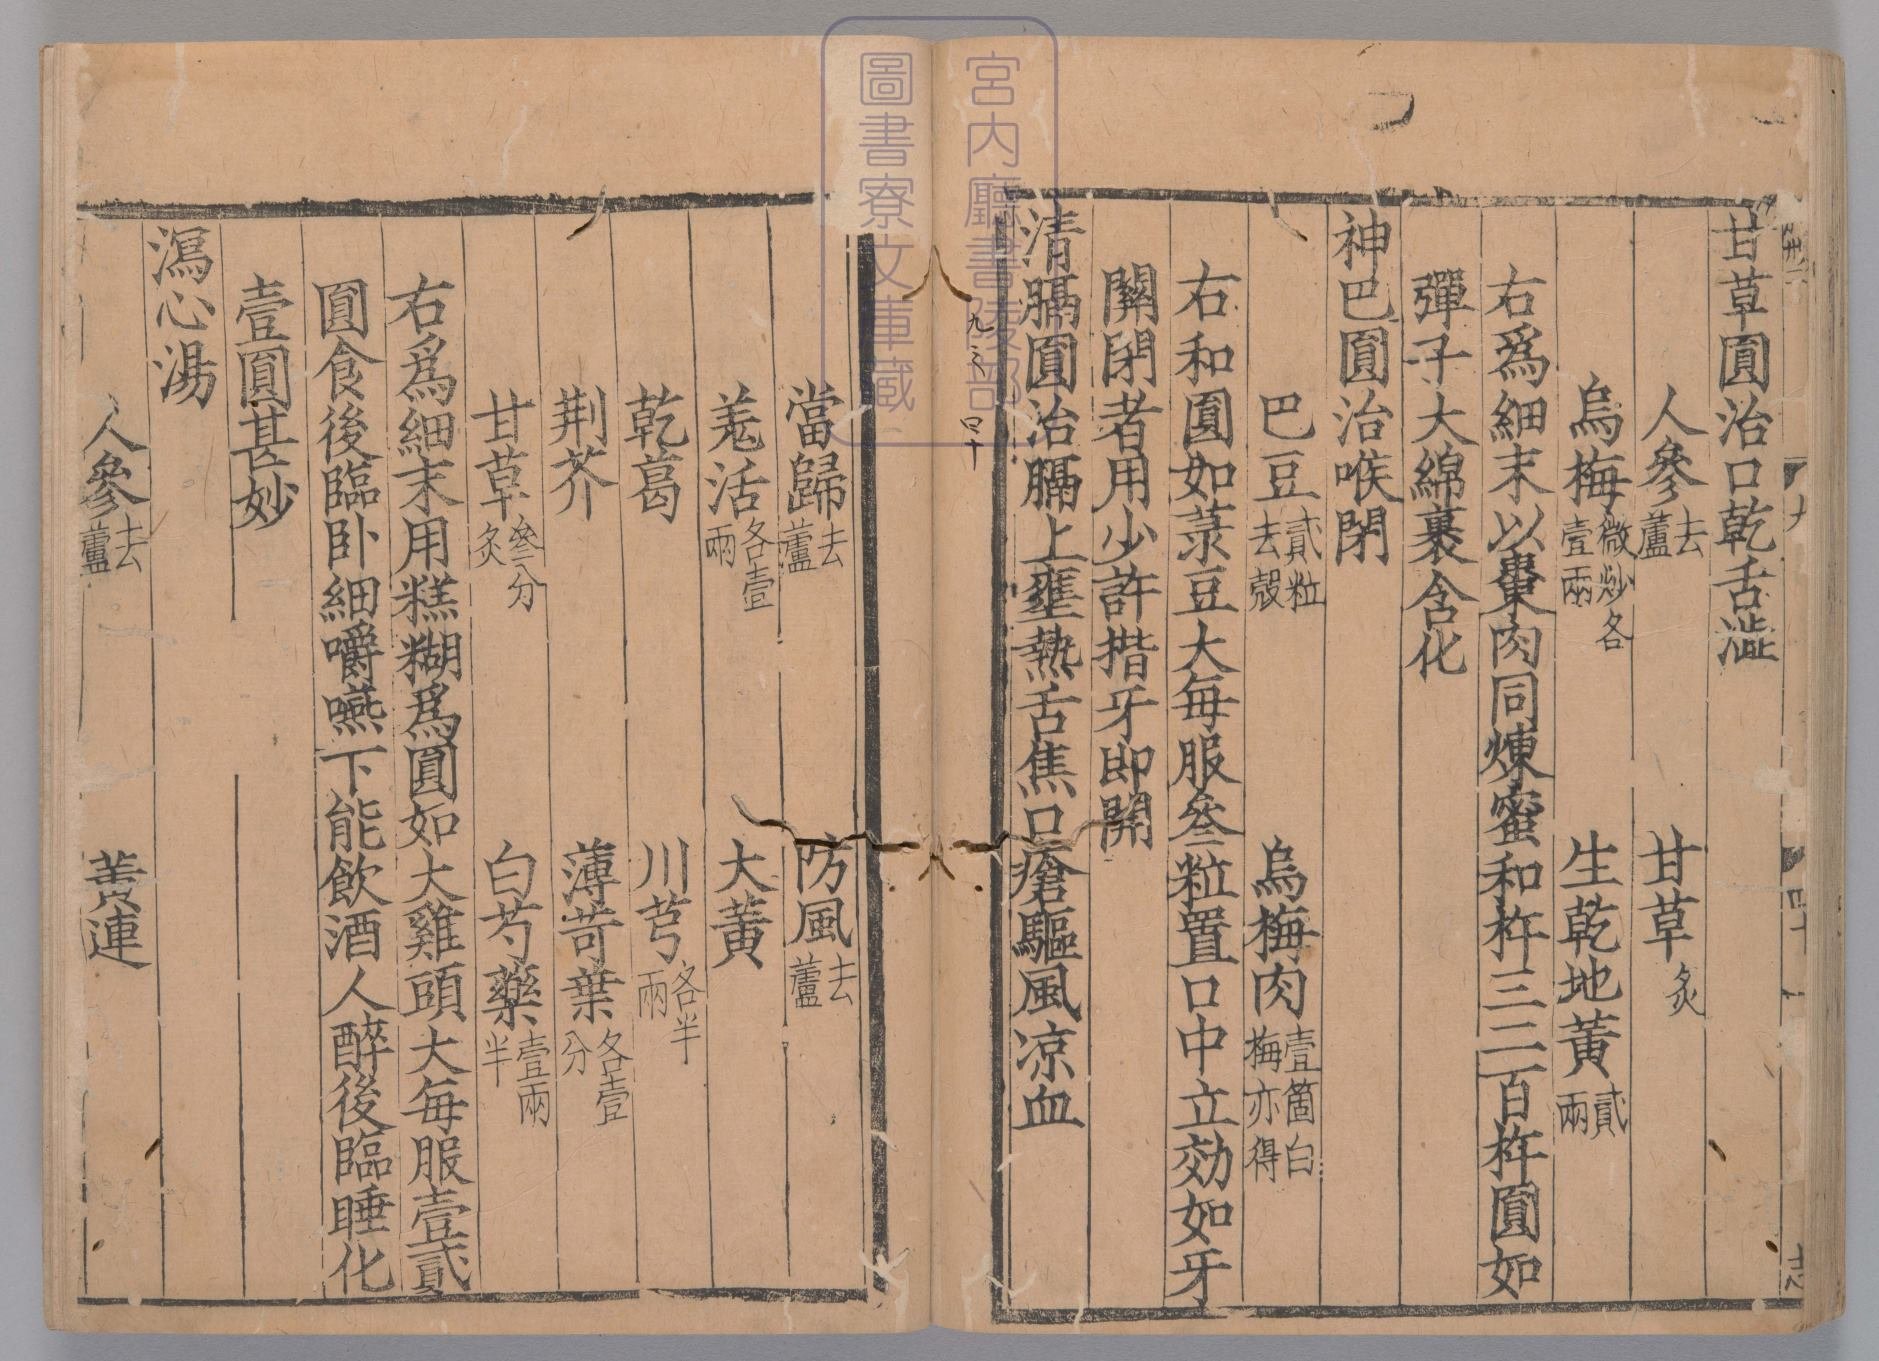 甘草圓治口乾舌澁
人參去蘆　甘草炙
烏梅微炒各壹兩　生乾地黃貳兩
右爲細末以棗肉同煉蜜和杵三二百杵圓如
彈子大綿裹含化
神巴圓治喉閉
巴豆貳粒去殼　烏梅肉壹箇白梅亦得
右和圓如菉豆大每服叄粒置口中立効如牙
關閉者用少許揩牙即開
清膈圓治膈上壅熱舌焦口瘡驅風凉血
當歸去蘆　防風去蘆
羗活各壹兩　大黃
乾葛　川芎各半兩
荆芥　薄苛葉各壹分
甘草叄分炙　白芍藥壹兩半
右爲細末用糕糊爲圓如大雞頭大每服壹貳
圓食後臨卧細嚼嚥下能飲酒人醉後臨睡化
壹圓甚妙
瀉心湯
人參去蘆　黃連
九之 四十
宮内廳書陵部
圖書寮文庫藏